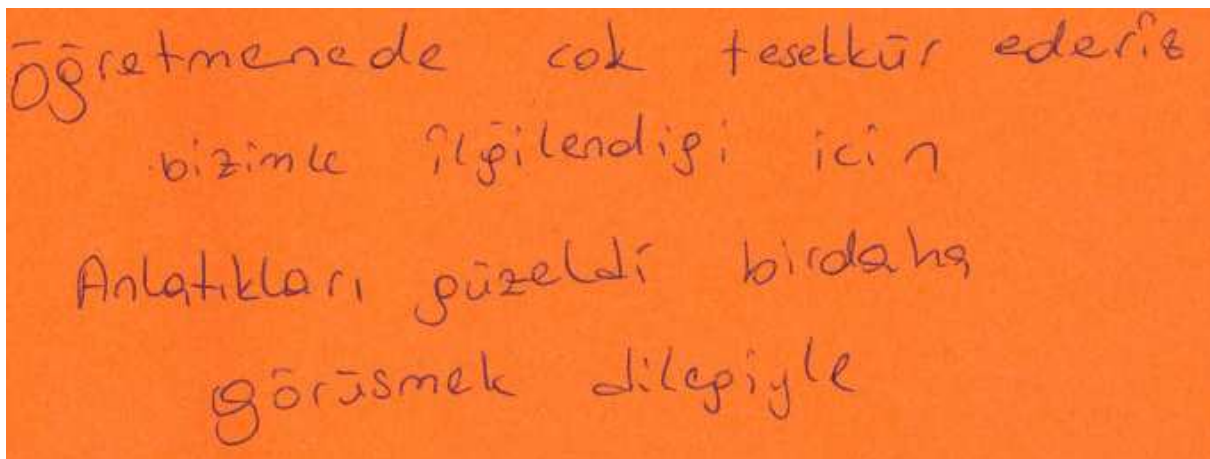 Öğretmenede cok tesekkür ederiz
bizimle ilgilendigi icin
Anlatıkları güzeldi birdaha
görüsmek dilegiyle